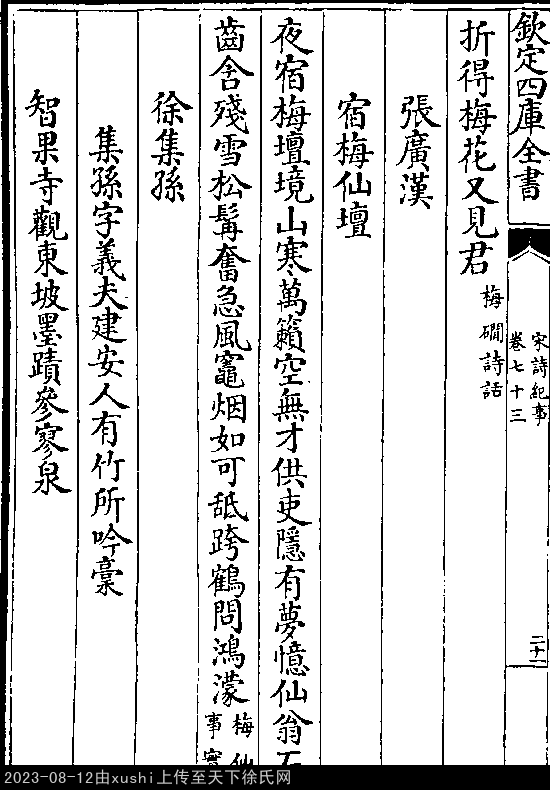 欽定四庫全書
宋詩紀事
卷七十三
二十一
折得梅花又見君梅磵詩話
張廣漢
宿梅仙壇
夜宿梅壇境山寒萬籟空無才供吏隱有夢憶仙翁石
齒含殘雪松髯奮急風竈烟如可䑛跨鶴問鴻濛梅仙事實
徐集孫
集孫字義夫建安人有竹所吟藁
智果寺觀東坡墨蹟參寥泉
2023-08-12由xushi上传至天下徐氏网